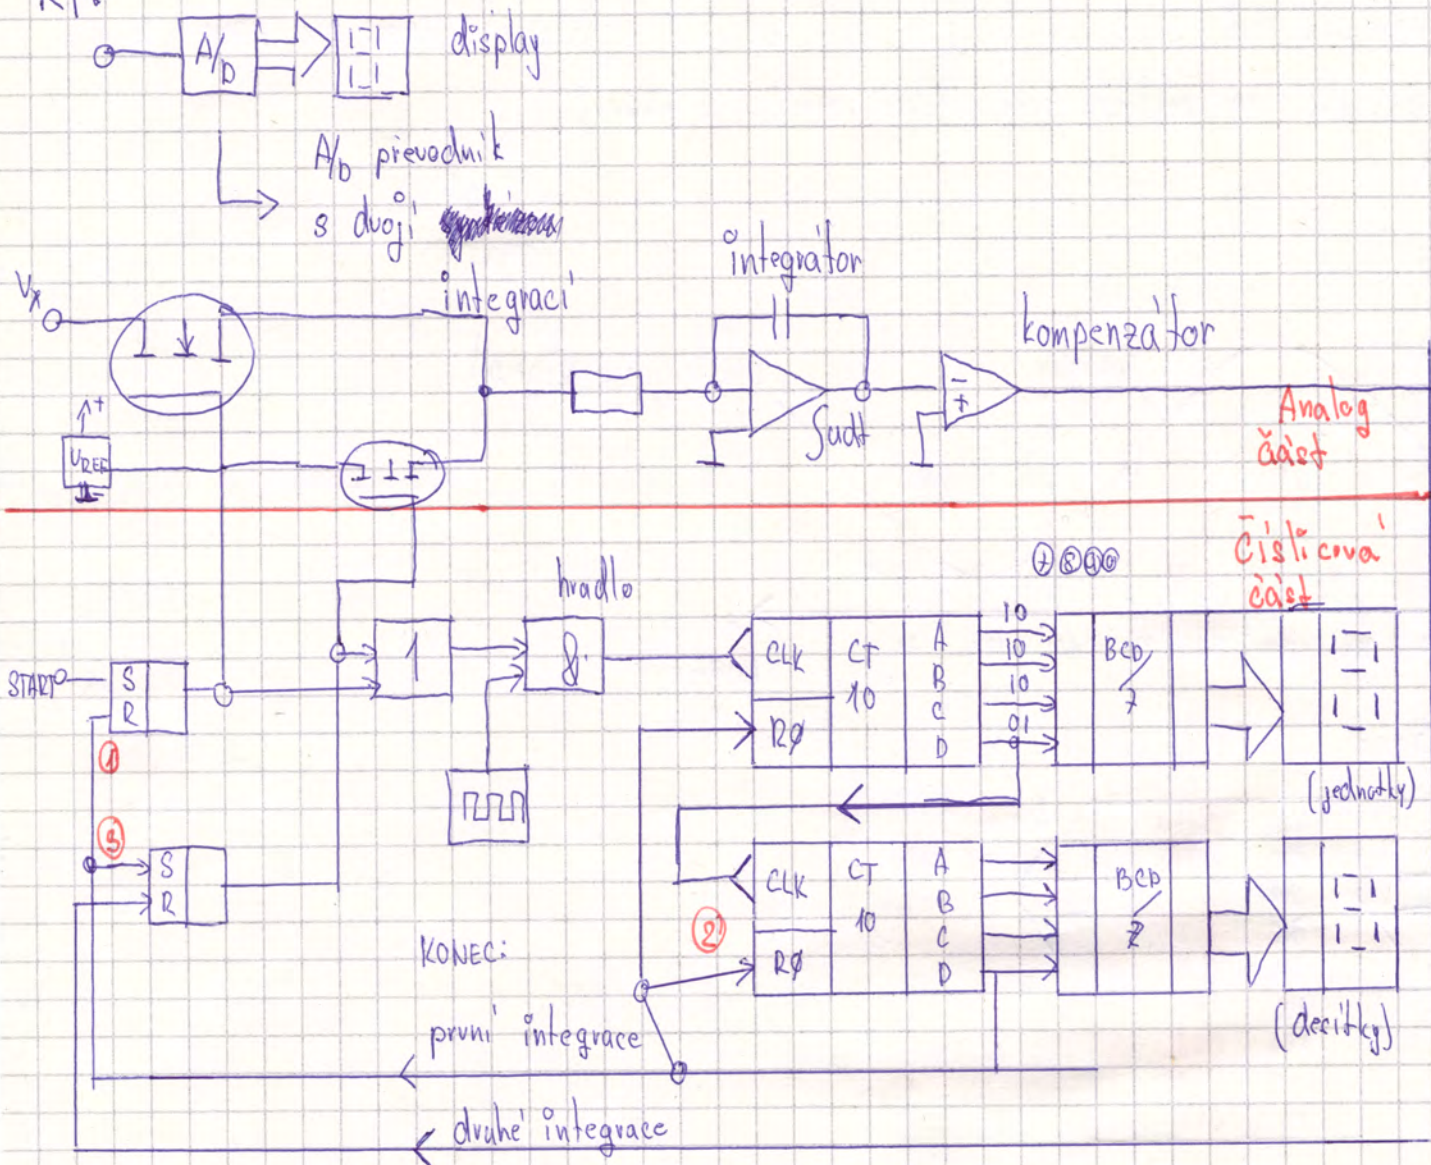 A/D
display
A/D převodník
s dvoji
integrací
Vx
integrátor
kompenzátor
+
UREF
-
+
∫udt
Analog
část
Číslicová
část
hradlo
7 8 9 0
START
S
R
1
&
CLK
CT
10
R∅
A
B
C
D
10
10
10
01
0
BCD/
7
(jednotky)
1
3
S
R
2
CLK
CT
10
R∅
A
B
C
D
BCD/
7
(desítky)
KONEC:
první integrace
druhé integrace